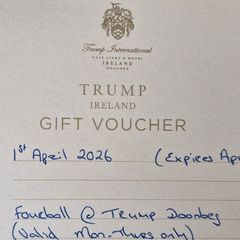 Trump International
GOLF LINKS & HOTEL
IRELAND
DOONBEG
TRUMP
IRELAND
GIFT VOUCHER
1st April 2026 (Expires Ap
Fourball @ Trump Doonbeg
(Valid Mon-Thurs only)